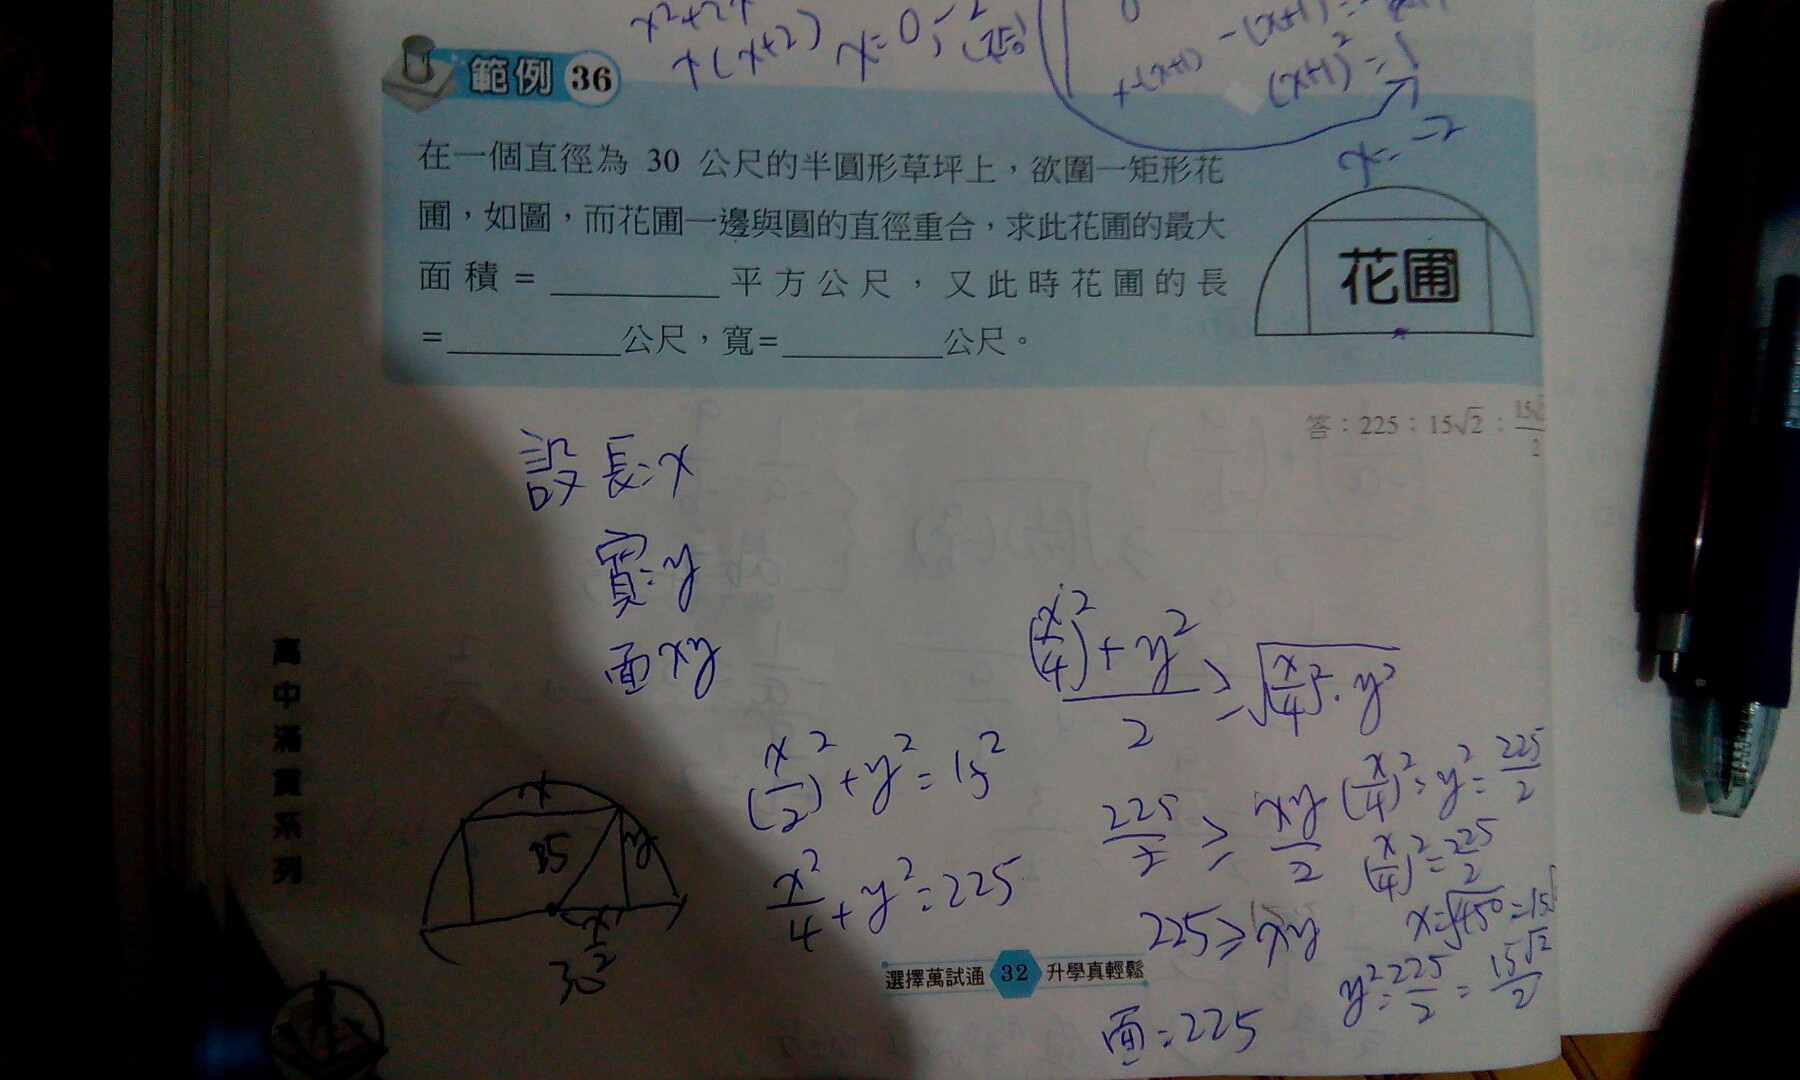 x²+2x
x(x+2) x=0,-2
-(x+1)=
+-(x+1)
(x+1)²=1
x=-2
範例 36
在一個直徑為 30 公尺的半圓形草坪上，欲圍一矩形花
圃，如圖，而花圃一邊與圓的直徑重合，求此花圃的最大
面積=__________平方公尺，又此時花圃的長
=__________公尺，寬=__________公尺。
花圃
答：225；15√2；15√2/2
設 長:x
寬:y
面xy
(x/2)²+y²=15²
x²/4+y²=225
x
15
y
x/2
30
(x/4)²+y²/2≥√(x/4)²·y²
225/2≥xy/2
225≥xy
面=225
(x/4)²=y²=225/2
(x/4)²=225/2
x=√450=15√
y²=225/2=15√2/2
高中滿貫系列
選擇萬試通 32 升學真輕鬆